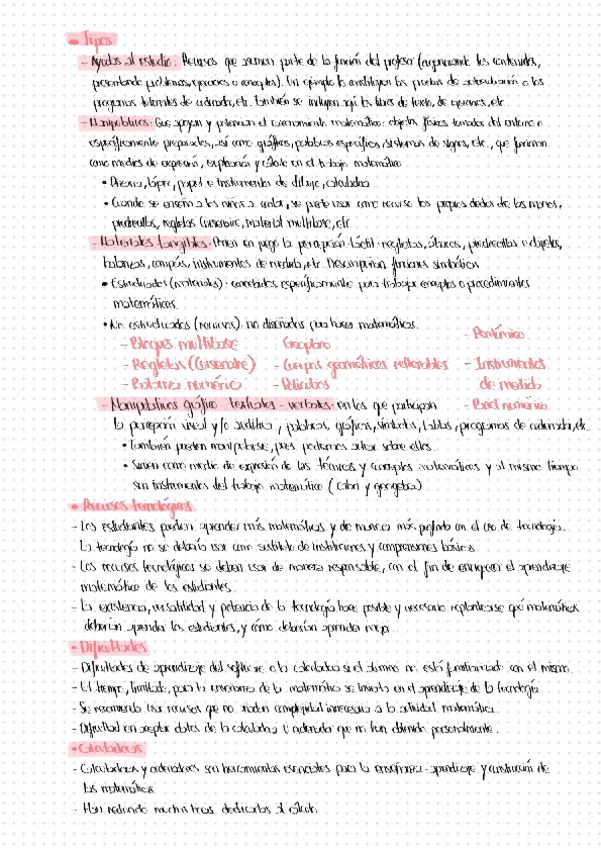 • Tipos
- Ayudas al estudio: Recursos que asumen parte de la función del profesor (organizando los contenidos,
presentando problemas, ejercicios o conceptos). Un ejemplo lo constituyen las pruebas de autoevaluación o los
programas tutoriales de ordenador, etc. También se incluyen aquí los libros de texto, de ejercicios, etc
- Manipulativos: Que apoyan y potencian el razonamiento matemático: objetos físicos tomados del entorno o
específicamente preparados, así como gráficos, palabras específicas, sistemas de signos, etc., que funcionan
como medios de expresión, exploración y cálculo en el trabajo matemático
• Pizarra, lápiz, papel e instrumentos de dibujo, calculadora
• Cuando se enseña a los niños a contar, se puede usar como recurso los propios dedos de las manos,
piedrecillas, regletas Cuisenaire, material multibase, etc
- Materiales tangibles: Ponen en juego la percepción táctil: regletas, ábacos, piedrecillas u objetos,
balanzas, compás, instrumentos de medida, etc. Desempeñan funciones simbólicas
• Estructurados (materiales): concebidos específicamente para trabajar conceptos o procedimientos
matemáticos.
• No estructurados (recursos): no diseñados para hacer matemáticas.
- Bloques multibase
- Regletas (Cuisenaire)
- Balanza numérica
Geoplano
- Cuerpos geométricos rellenables
- Películas
- Pentóminó
- Instrumentos
de medida
- Panel numérico
- Manipulativos gráfico-textuales-verbales: en los que participan
la percepción visual y/o auditiva, palabras, gráficos, símbolos, tablas, programas de ordenador, etc.
• También pueden manipularse, pues podemos actuar sobre ellos.
• Sirven como medio de expresión de las técnicas y conceptos matemáticos y al mismo tiempo
son instrumentos del trabajo matemático (Cabri y geogebra)
• Recursos tecnológicos
- Los estudiantes pueden aprender más matemáticas y de manera más profunda con el uso de tecnología.
La tecnología no se debería usar como sustituto de intuiciones y comprensiones básicas.
- Los recursos tecnológicos se deben usar de manera responsable, con el fin de enriquecer el aprendizaje
matemático de los estudiantes.
- La existencia, versatilidad y potencia de la tecnología hace posible y necesario replantearse qué matemáticas
deberían aprender los estudiantes, y cómo deberían aprender mejor.
• Dificultades
- Dificultades de aprendizaje del software o la calculadora si el alumno no está familiarizado con el mismo.
- El tiempo, limitado, para la enseñanza de la matemática se invierta en el aprendizaje de la tecnología.
- Se recomienda usar recursos que no añadan complejidad innecesaria a la actividad matemática.
- Dificultad en aceptar datos de la calculadora u ordenador que no han obtenido personalmente.
• Calculadoras
- Calculadoras y ordenadores son herramientas esenciales para la enseñanza-aprendizaje y construcción de
las matemáticas
- Han reducido muchas horas dedicadas al cálculo.